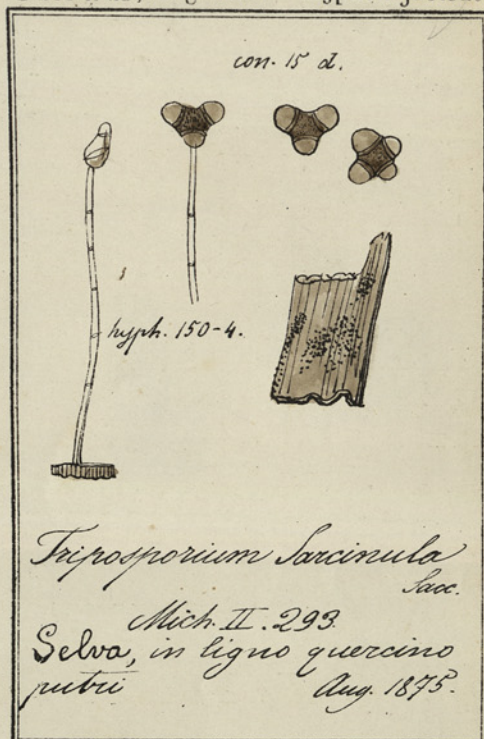 con. 15 d.
hyph. 150-4.
Triposporium Sarcinula
Sacc.
Mich. II. 293.
Selva, in ligno quercino
putri Aug. 1875.